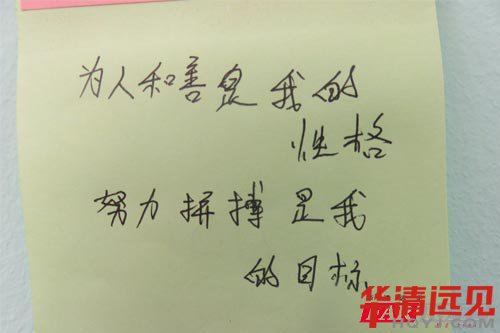 为人和善是我的
性格
努力拼搏是我
的目标
华清远见